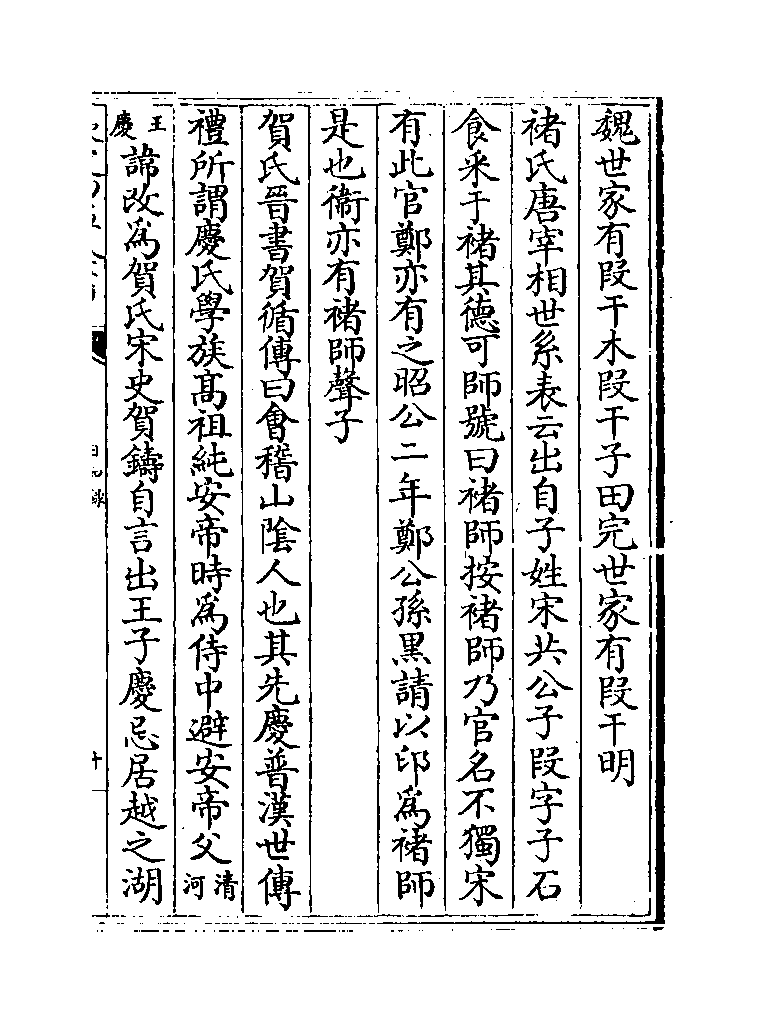 魏世家有段干木段干子田完世家有段干明
褚氏唐宰相世系表云出自子姓宋共公子段字子石
食采于褚其德可師號曰褚師按褚師乃官名不獨宋
有此官鄭亦有之昭公二年鄭公孫黑請以印為褚師
是也衞亦有褚師聲子
賀氏晉書賀循傳曰會稽山陰人也其先慶普漢世傳
禮所謂慶氏學族高祖純安帝時為侍中避安帝父清河
王慶諱改為賀氏宋史賀鑄自言出王子慶忌居越之湖
日知錄